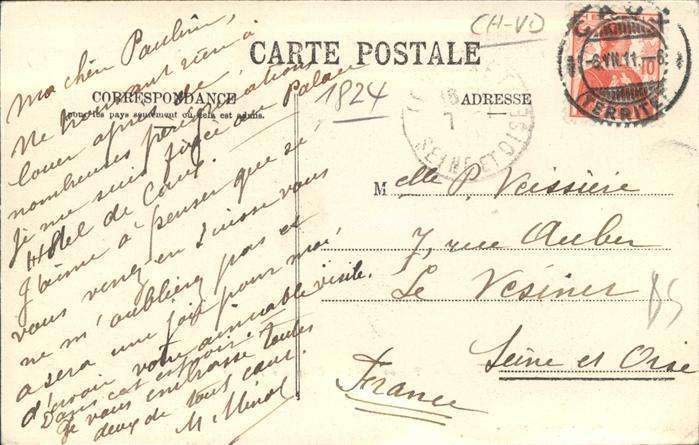 CARTE POSTALE
CORRESPONDANCE
ADRESSE
CH-VD
1824
Ma chère Pauline,
Ne trouvant rien à
louer après de
nombreuses pérégrinations
je me suis fixée au Palace
Hôtel de Caux.
J'aime à penser que si
vous venez en Suisse vous
ne m'oublierez pas et
sera une joie pour moi
d'avoir votre aimable visite.
Dans cet espoir
je vous embrasse toutes
deux de tout cœur.
M.
Melle P. Veissière
7, rue Auber
Le Vésinet
Seine et Oise
France
CAUX
-6.VII.11.-6
(TERRITET)
10
18
7
SEINE ET OISE